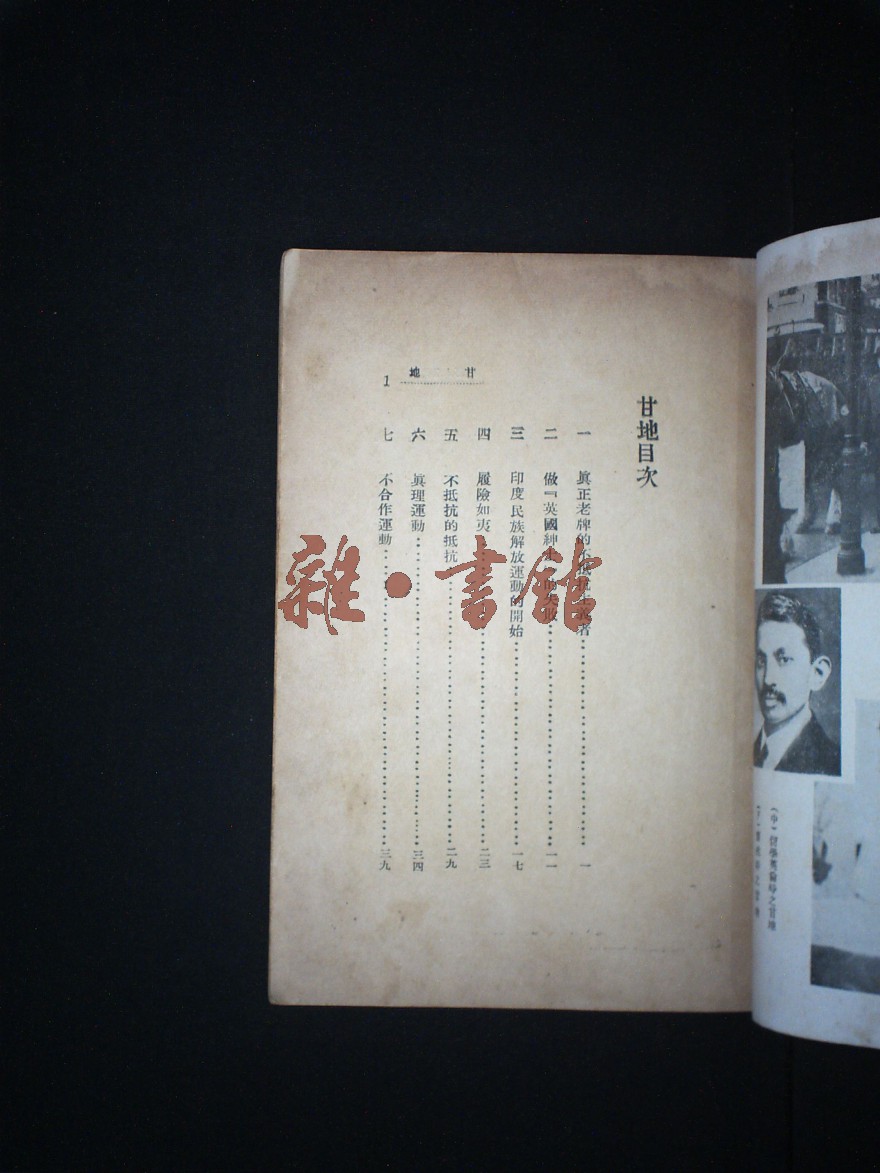 甘地目次
一 眞正老牌的不抵抗主義者 一
二 做『英國紳士』的失敗 一一
三 印度民族解放運動的開始 一七
四 履險如夷 二三
五 不抵抗的抵抗 二九
六 眞理運動 三四
七 不合作運動 三九
甘地
1
雜·書館